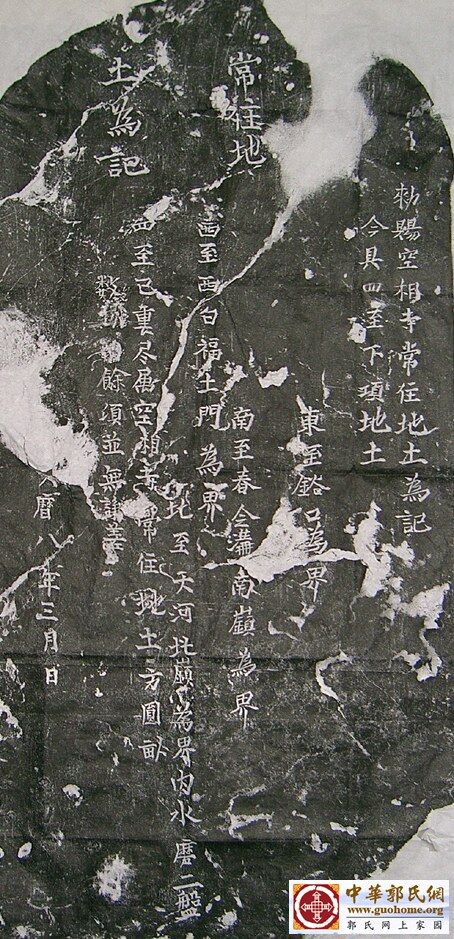 常住地
土為記
勑賜空相寺常住地土為記
今具四至下項地土
東至峪口為界
南至春南嶺為界
西至西白福土門為界
北至天河北嶺為界内水磨二盤
四至已裏尽属空相寺常住地土方圓畝
数餘項並無
曆八年三月日
中華郭氏網
www.guohome.org
郭氏网上家园